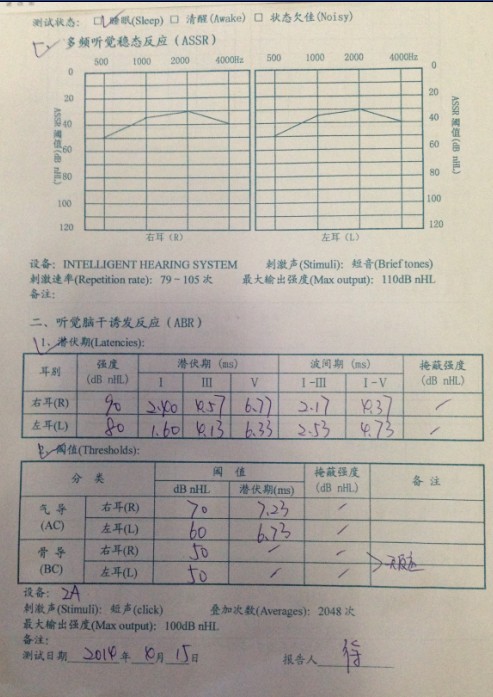 测试状态: □ 睡眠(Sleep) □ 清醒(Awake) □ 状态欠佳(Noisy)
多频听觉稳态反应 (ASSR)
500 1000 2000 4000Hz 500 1000 2000 4000Hz
0 0
20 20
40 40
60 60
80 80
100 100
120 120
ASSR 阈值(dB nHL) ASSR 阈值(dB nHL)
右耳 (R) 左耳 (L)
设备: INTELLIGENT HEARING SYSTEM 刺激声(Stimuli): 短音(Brief tones)
刺激速率(Repetition rate): 79-105 次 最大输出强度(Max output): 110dB nHL
备注:
二、听觉脑干诱发反应 (ABR)
1. 潜伏期(Latencies):
耳别 强度 (dB nHL) 潜伏期 (ms) 波间期 (ms) 掩蔽强度 (dB nHL)
I III V I-III I-V
右耳(R) 90 2.40 4.57 6.77 2.17 4.37 /
左耳(L) 80 1.60 4.13 6.33 2.53 4.73 /
2. 阈值(Thresholds):
分 类 阈 值 掩蔽强度 (dB nHL) 备 注
dB nHL 潜伏期(ms)
气 导 (AC) 右耳(R) 70 7.23 /
左耳(L) 60 6.73 /
骨 导 (BC) 右耳(R) 50 / / 无反应
左耳(L) 50 / /
设备: 2A
刺激声(Stimuli): 短声(click) 叠加次数(Averages): 2048 次
最大输出强度(Max output): 100dB nHL
备注:
测试日期 2014 年 10 月 15 日 报告人